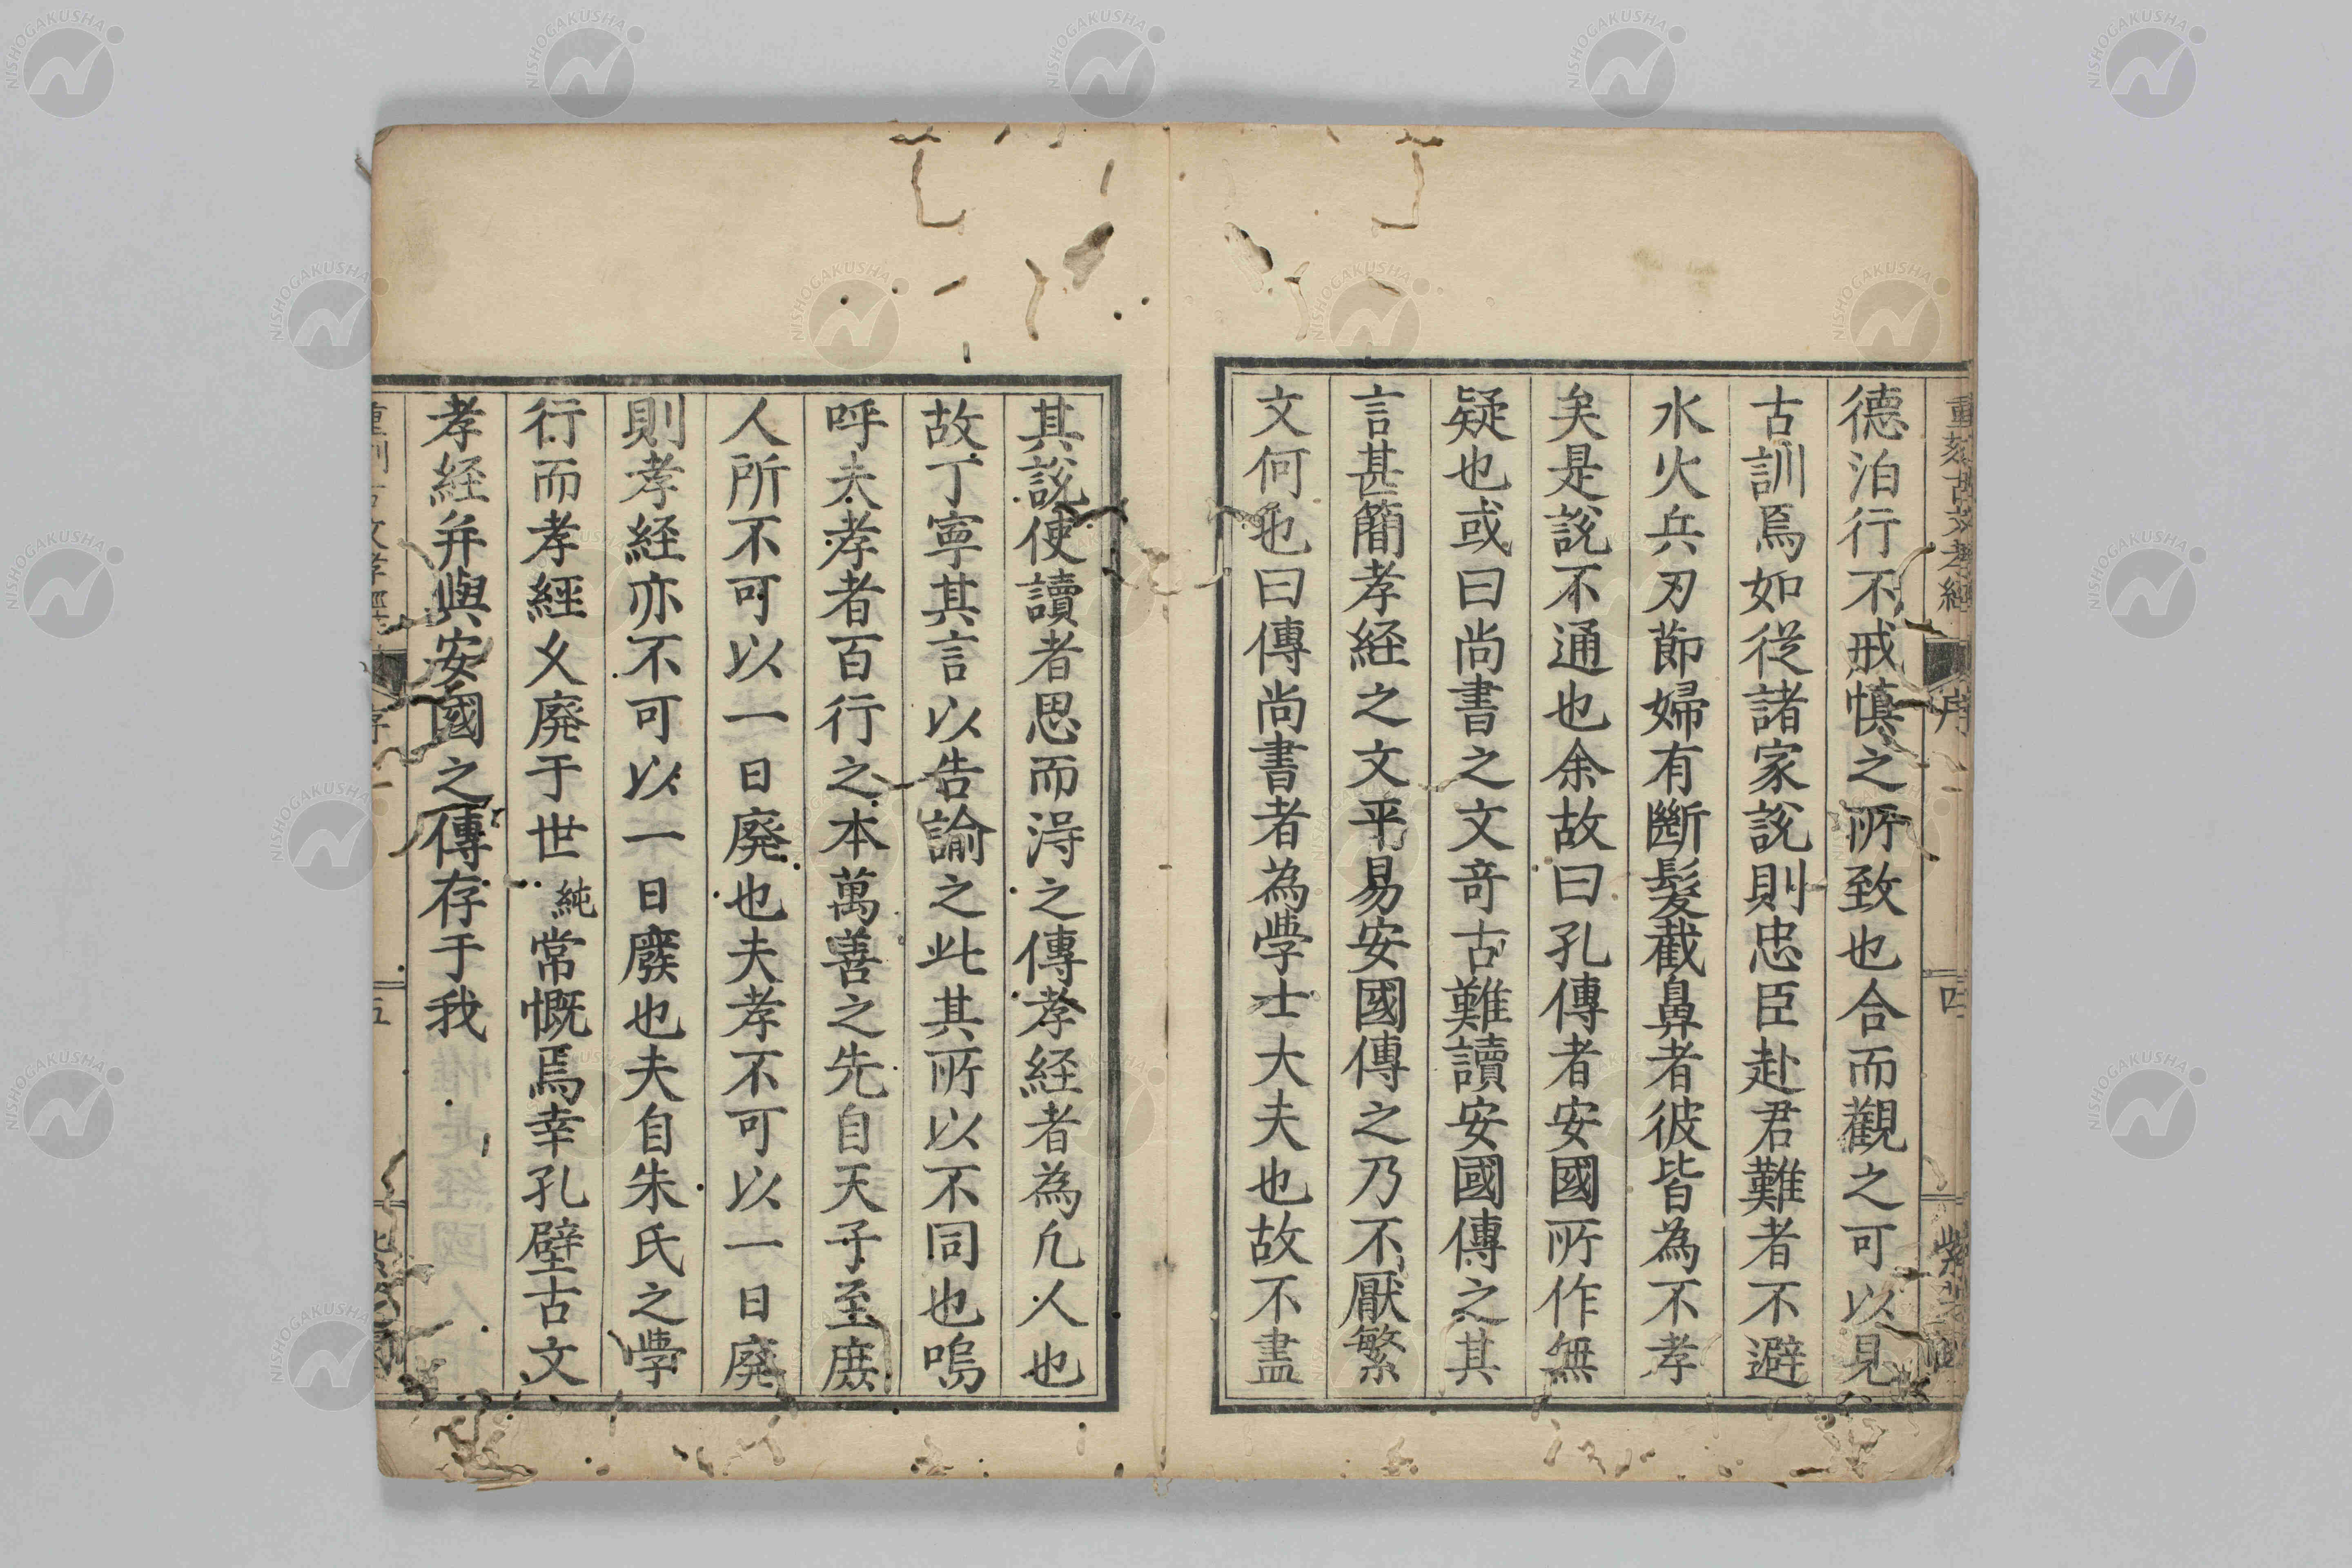 重刻古文孝經
序
四
德泊行不戒慎之所致也合而觀之可以見
古訓焉如從諸家說則忠臣赴君難者不避
水火兵刃節婦有斷髮截鼻者彼皆為不孝
矣是說不通也余故曰孔傳者安國所作無
疑也或曰尚書之文奇古難讀安國傳之其
言甚簡孝経之文平易安國傳之乃不厭繁
文何也曰傳尚書者為學士大夫也故不盡
其說使讀者思而淂之傳孝経者為凢人也
故丁寧其言以告諭之此其所以不同也嗚
呼夫孝者百行之本萬善之先自天子至庶
人所不可以一日廢也夫孝不可以一日廢
則孝経亦不可以一日廢也夫自朱氏之學
行而孝經乆廢于世純常慨焉幸孔壁古文
孝経并與安國之傳存于我
五
NISHOGAKUSHA